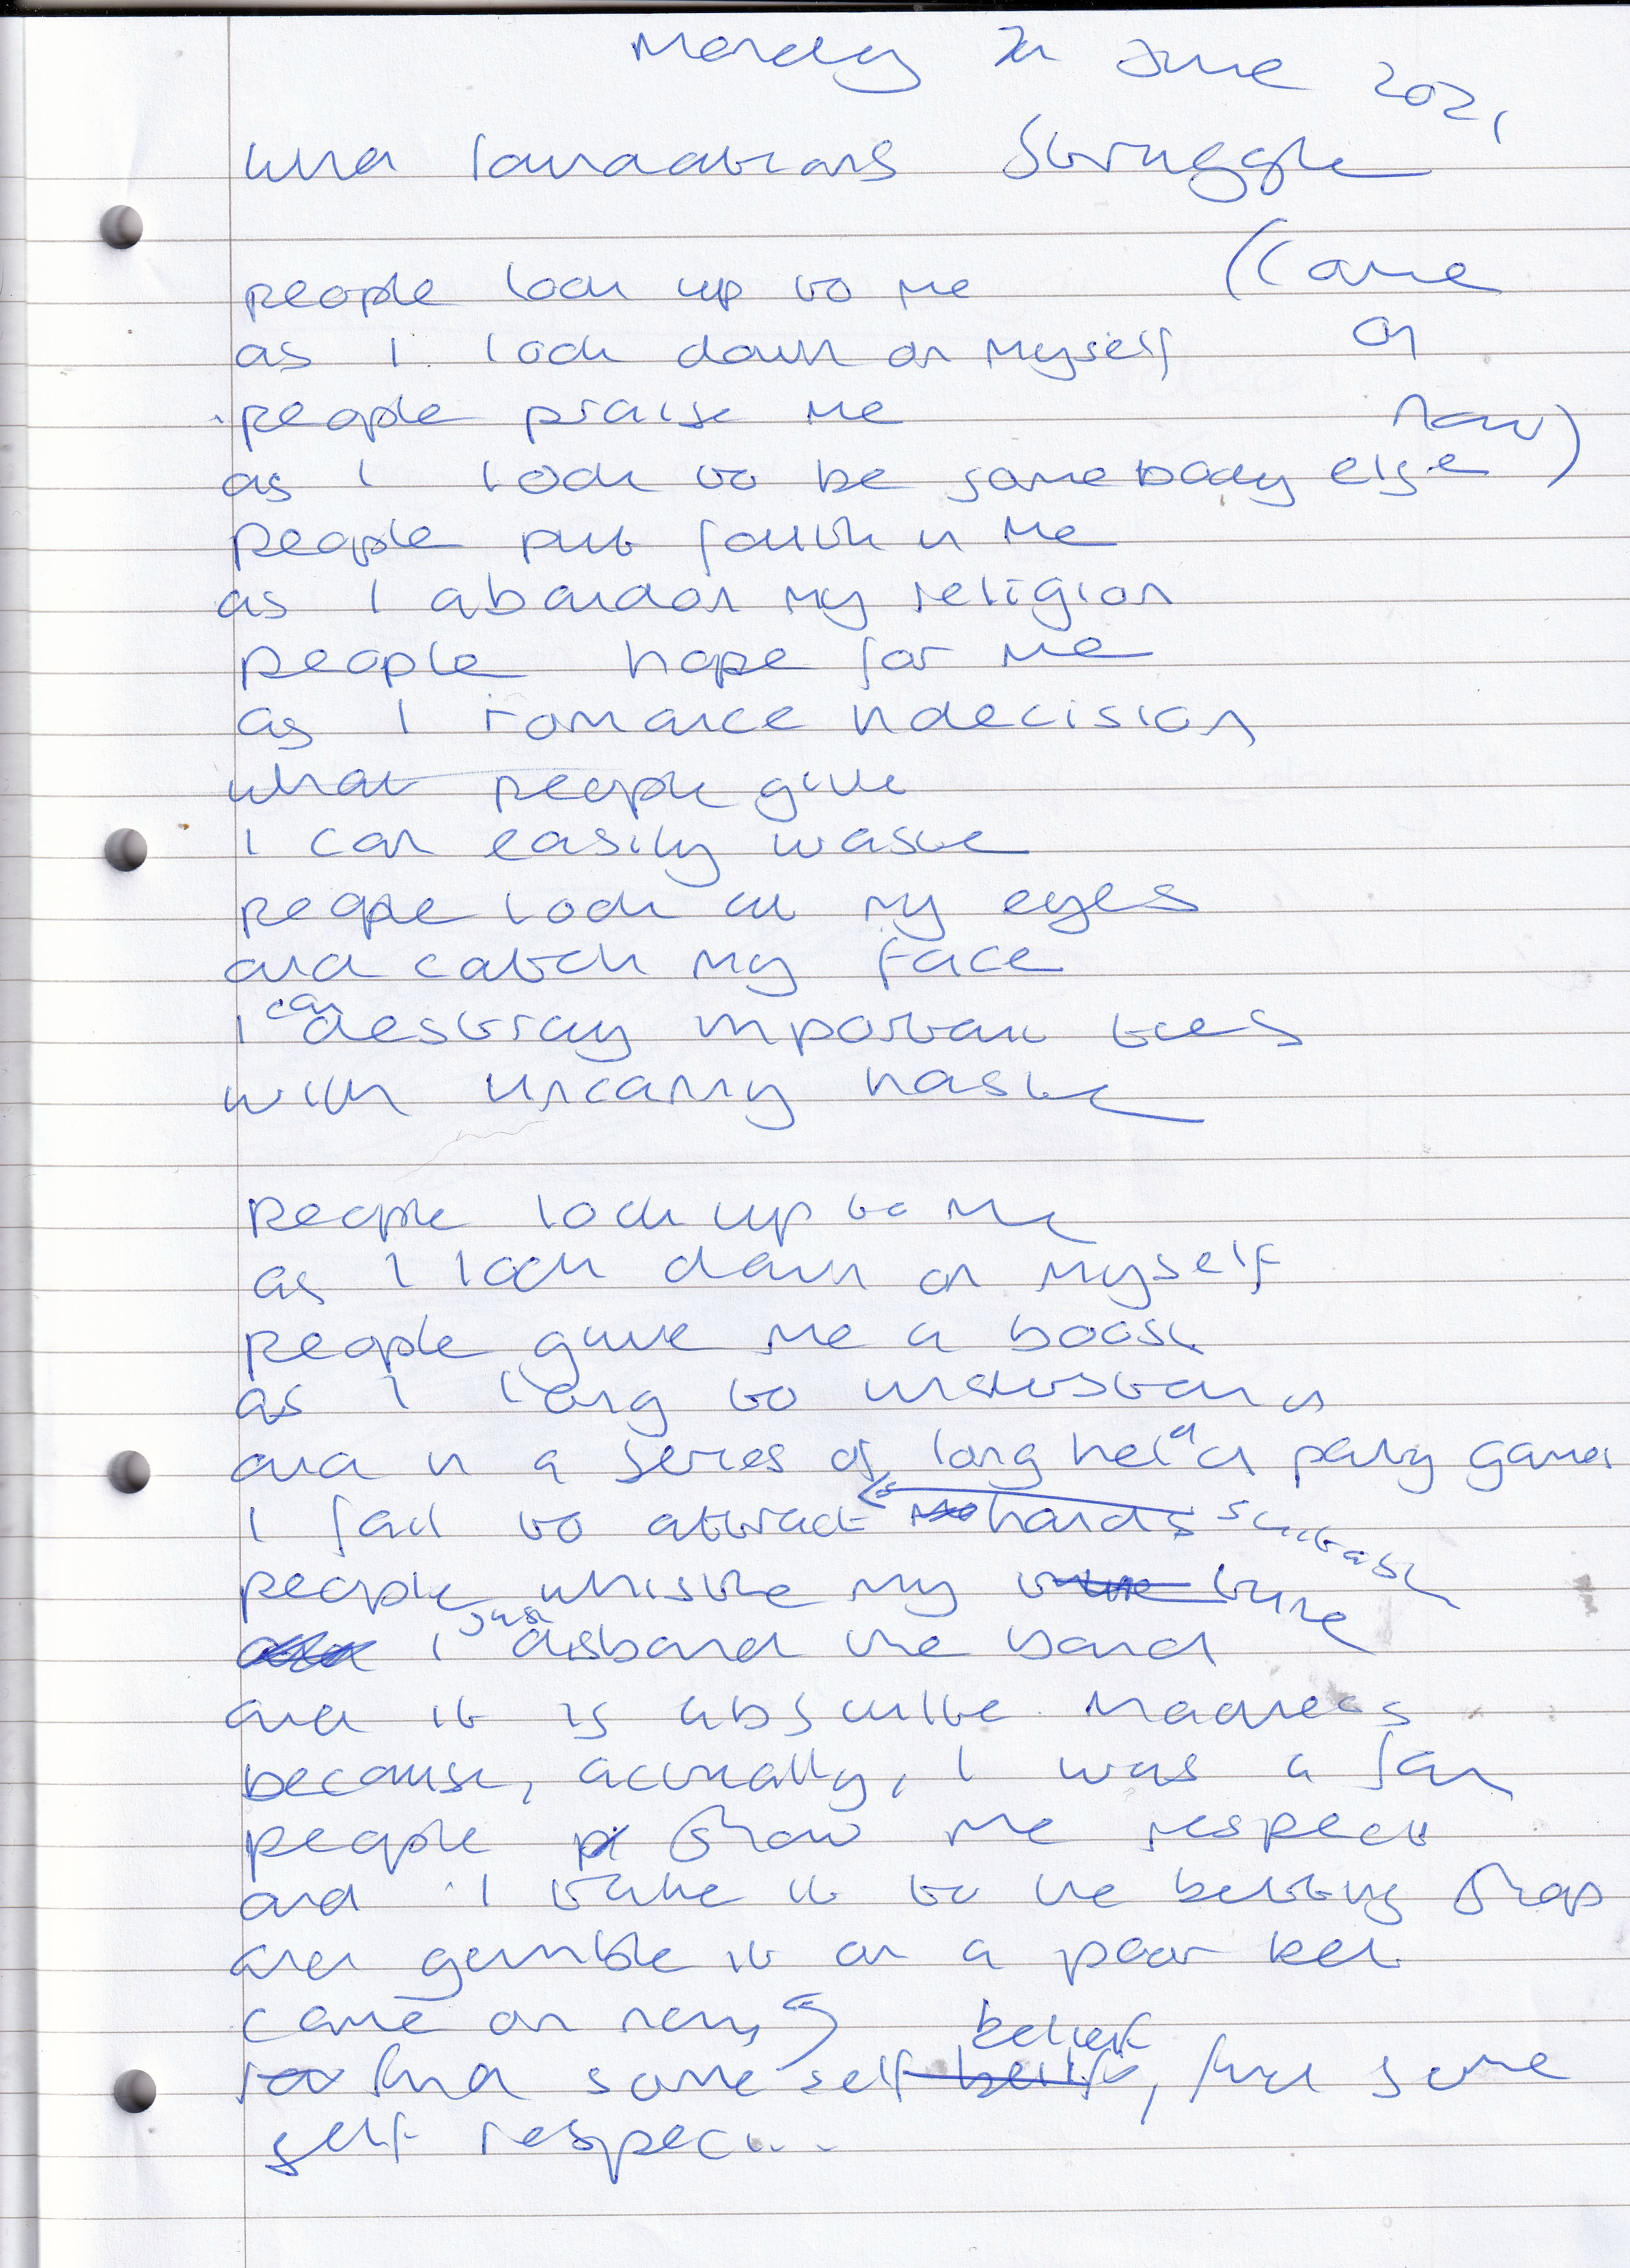 Monday June 2021
Foundations Struggle
(Come
on
now)
people look up to me
as I look down on myself
people praise me
as I look to be somebody else
people put faith in me
as I abandon my religion
people hope for me
as I romance indecision
what people give
I can easily waste
people look in my eyes
and catch my face
I can destroy important ties
with uncanny haste
people look up to me
as I look down on myself
people give me a boost
as I long to understand
and in a series of long held party games
I fail to attract suitable hands
people whistle my tune
I just disband the band
and it is absolute madness
because, actually, I was a fan
people show me respect
and I take it to the betting shop
and gamble it on a poor bet
come on now,
find some self belief, find some
self respect...